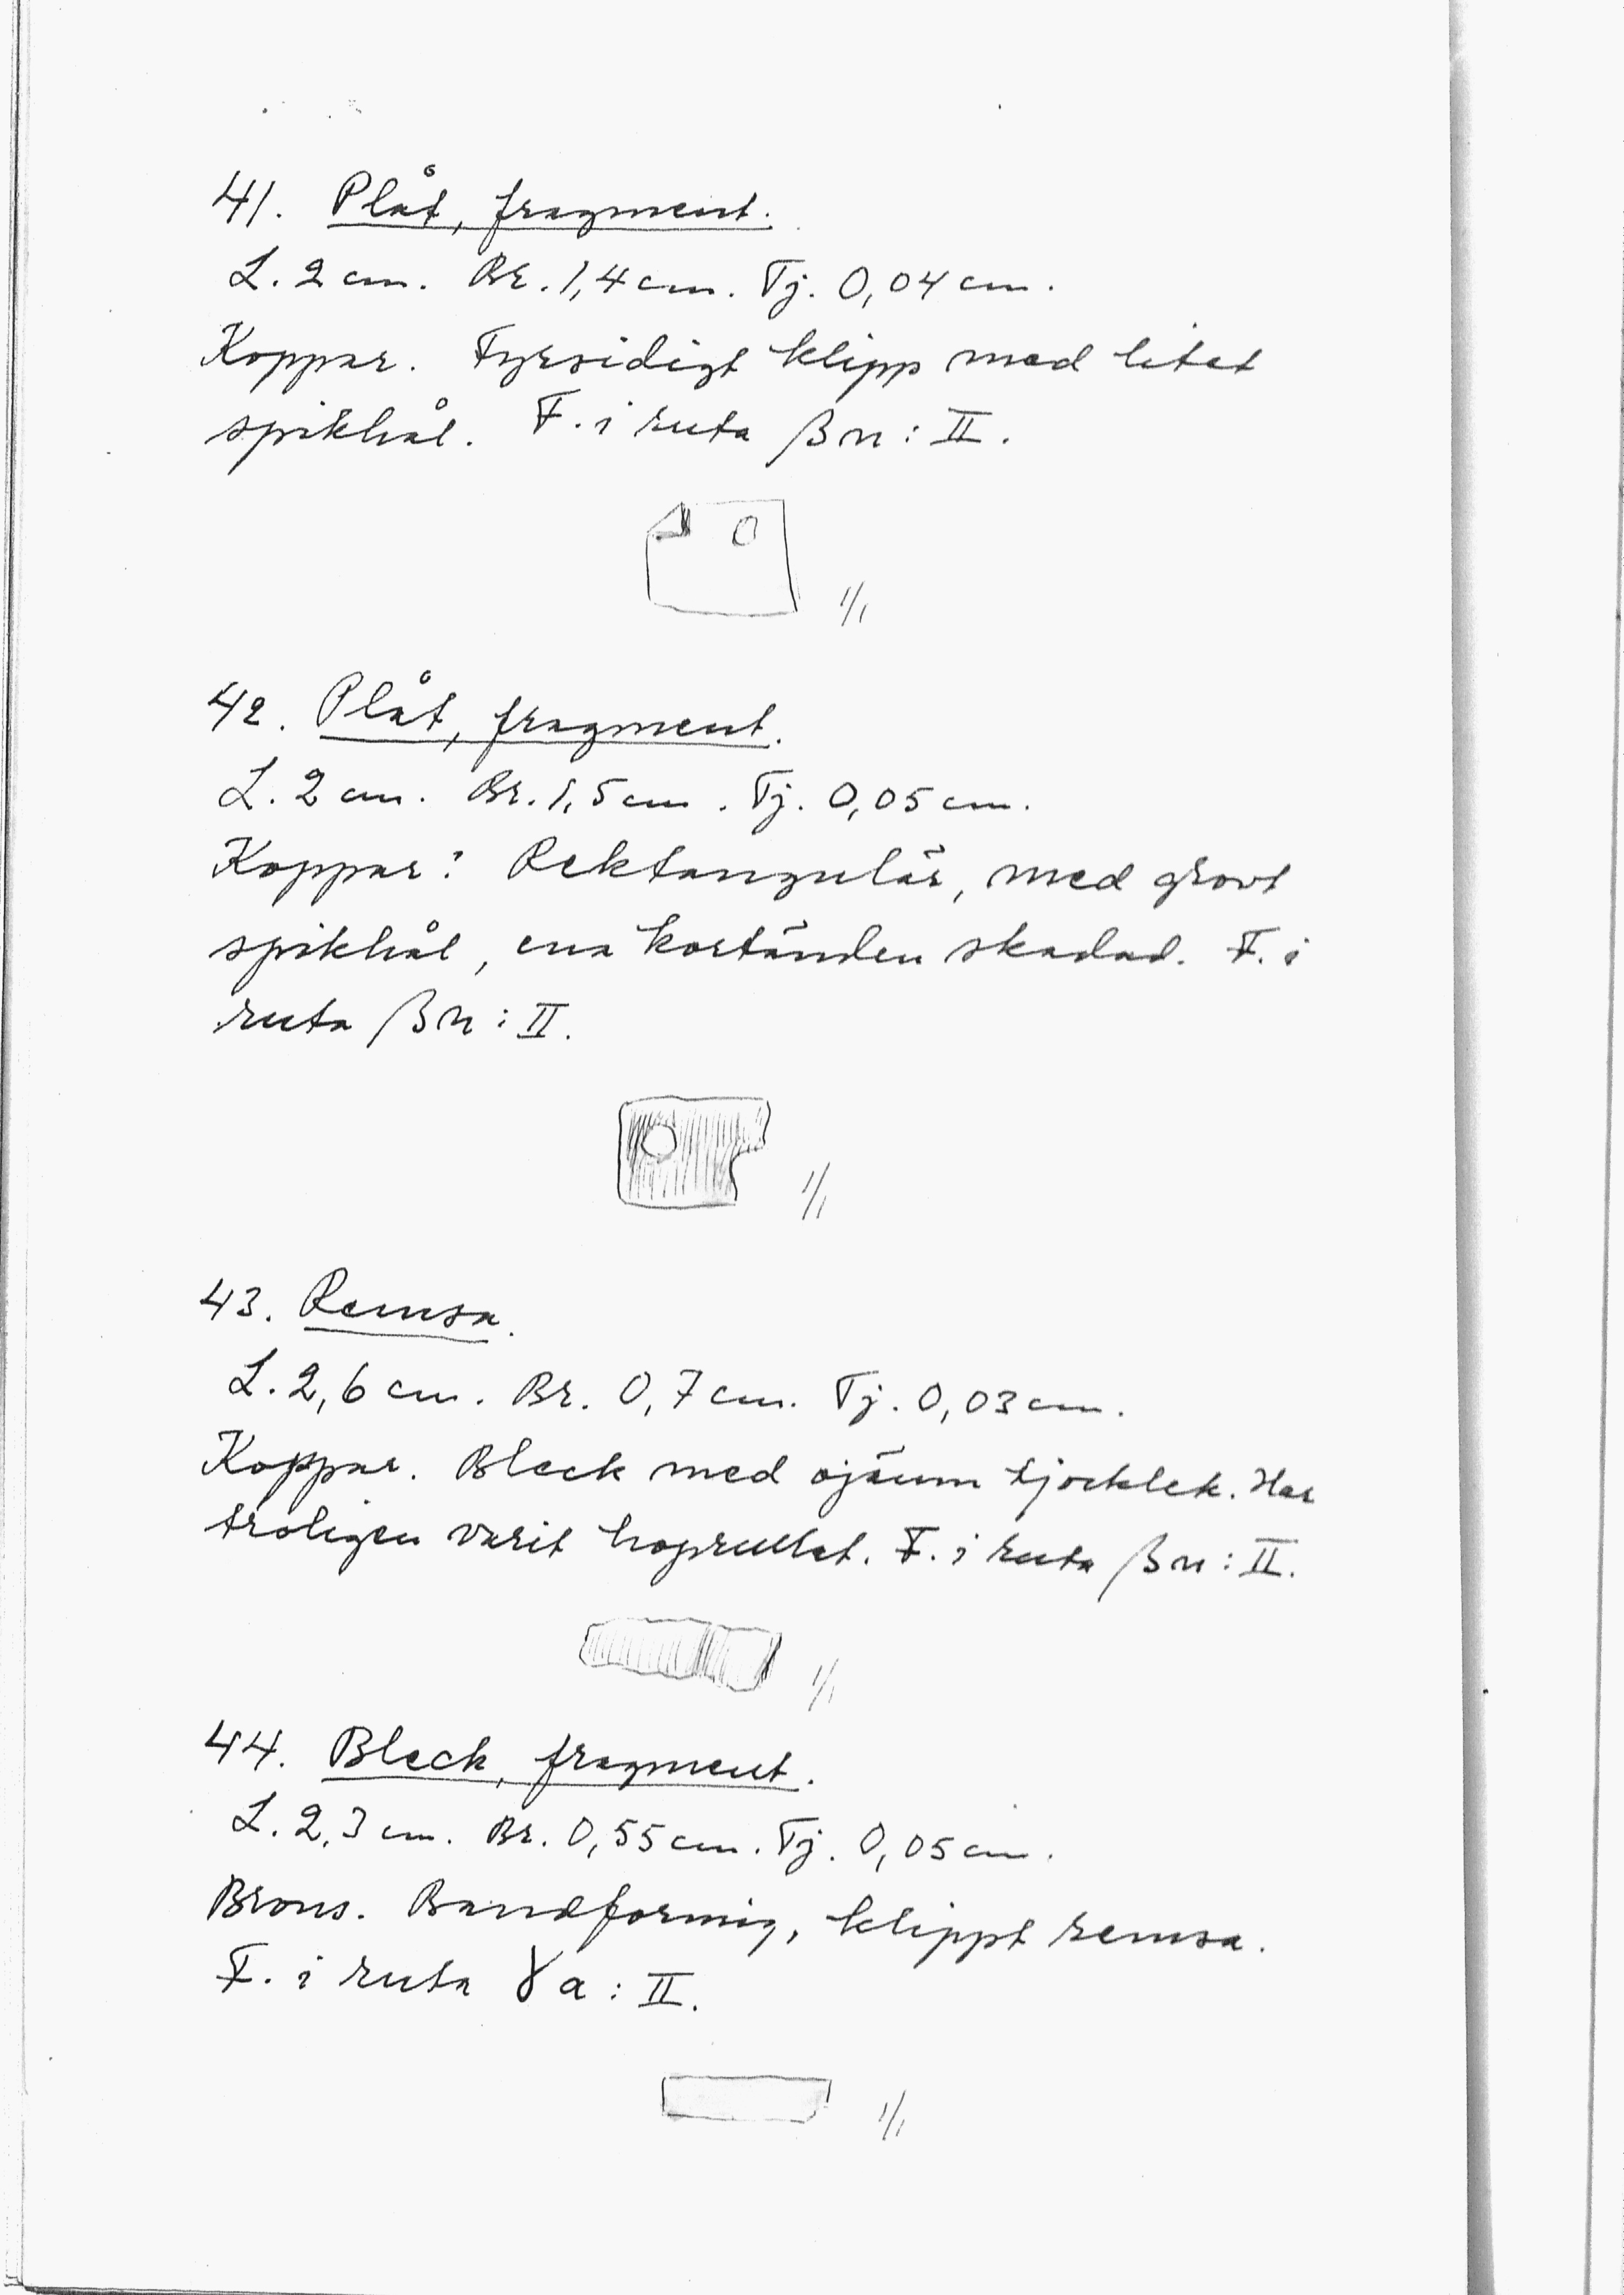 41. Plåt, fragment.
L. 2 cm. Br. 1,4 cm. Tj. 0,04 cm.
Koppar. Fyrsidigt klipp med litet
spikhål. F. i ruta βn : II.
1/1
42. Plåt, fragment.
L. 2 cm. Br. 1,5 cm. Tj. 0,05 cm.
Koppar? Rektangulär, med grovt
spikhål, ena kortänden skadad. F. i
ruta βn : II.
1/1
43. Remsa.
L. 2,6 cm. Br. 0,7 cm. Tj. 0,03 cm.
Koppar. Bleck med ojämn tjocklek. Har
troligen varit hoprullat. F. i ruta βn : II.
1/1
44. Bleck, fragment.
L. 2,3 cm. Br. 0,55 cm. Tj. 0,05 cm.
Brons. Bandformig, klippt remsa.
F. i ruta γa : II.
1/1